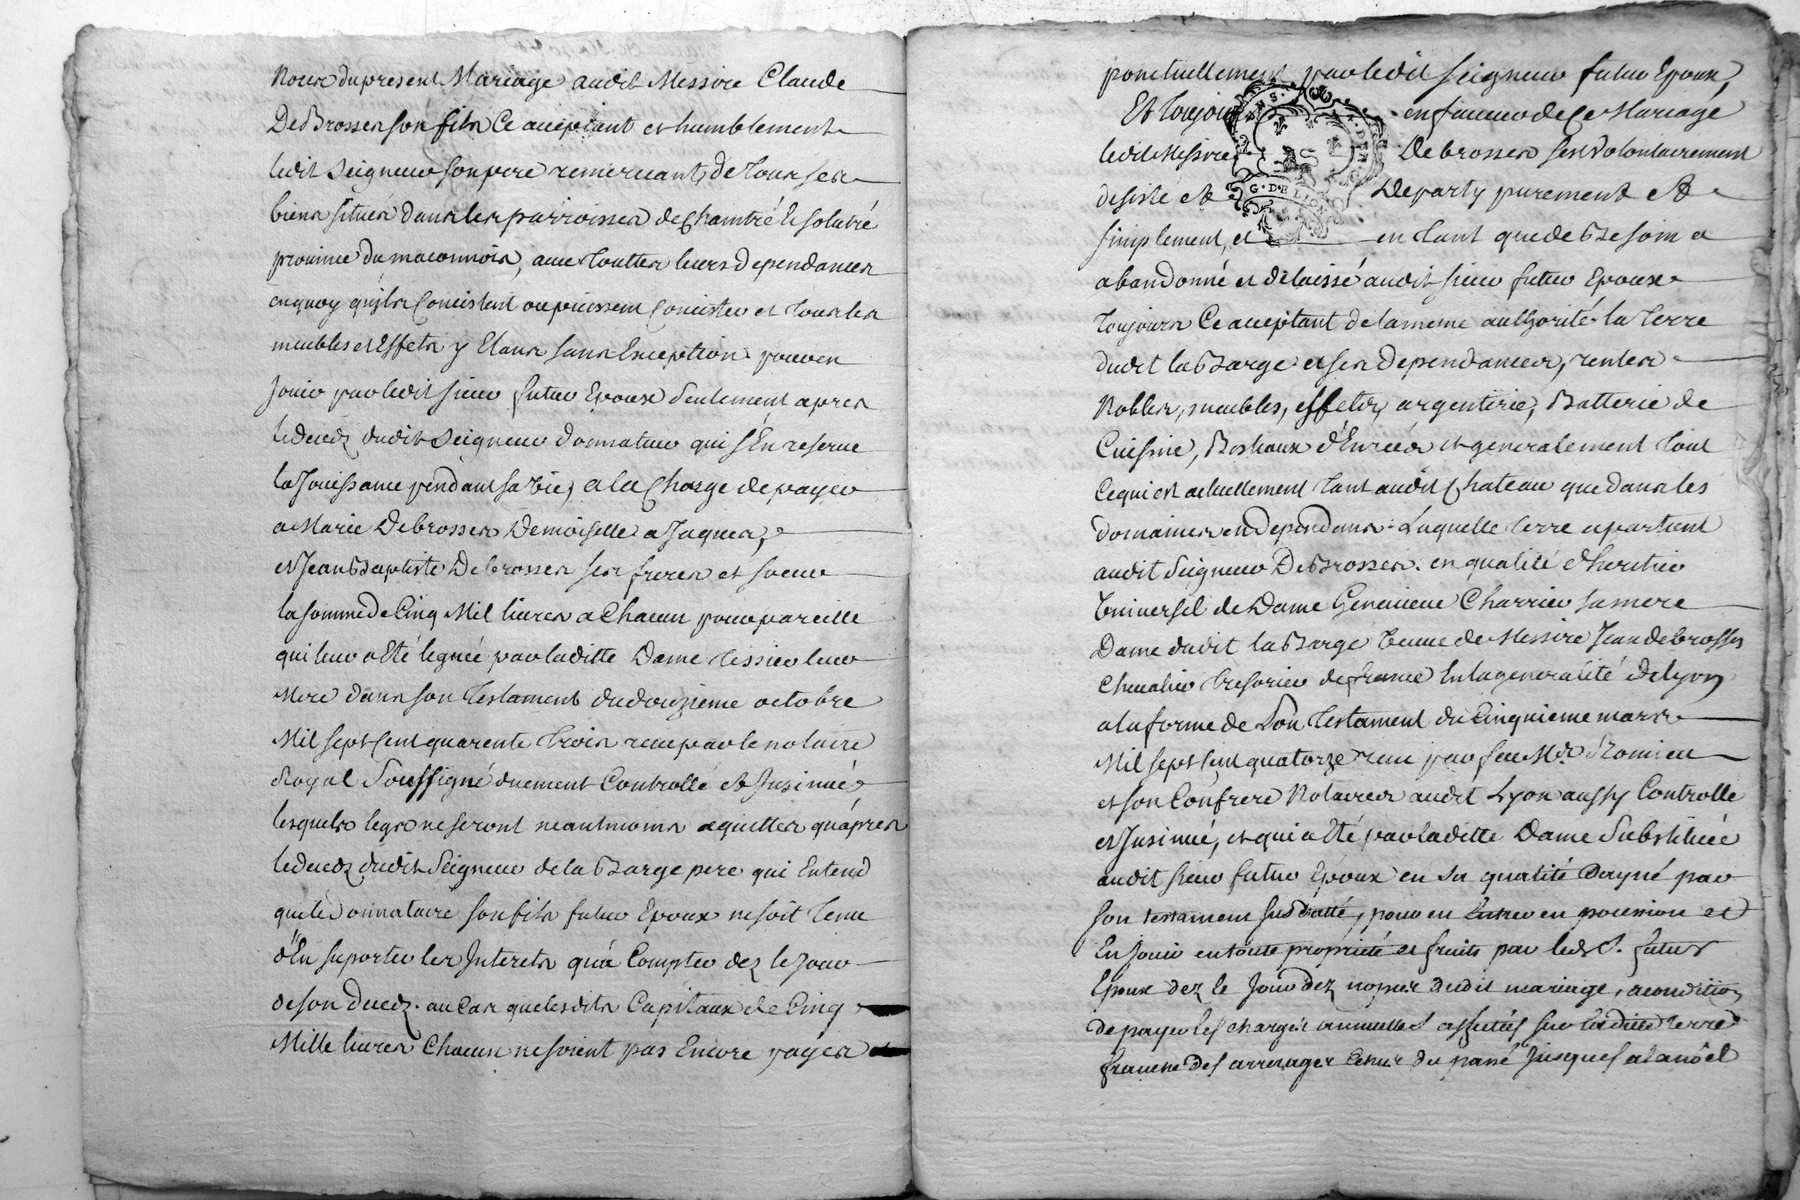 nocer du present Mariage audit Messire Claude
DeBrosses son fils Ce acceptant et humblement
ledit Seigneur son pere remerciant, de Tous ses
biens situés dans les parroisses de Chantré et solutré
province du maconnois, avec Touttes leurs dependances
en quoy qu'ils Consistent ou puissent Consister et Tous les
meubles et Effets y Etans sans Exception pour en
Jouir par ledit sieur futur Epoux Seulement apres
le decedz dudit Seigneur donnateur qui s'En reserve
la Jouissance pendant sa vie, a la Charge de payer
a Marie Debrosses Demoiselle a Jaques,
et Jean Baptiste Debrosses ses freres et soeur
la somme de Cinq Mil livres a Chacun pour pareille
qui leur a Eté leguée par laditte Dame Tissier leur
Mere dans son Testament du douzieme octobre
Mil sept Cent quarente Trois receu par le notaire
Royal Soussigné duement Controllé et Insinué
lesquels legs ne seront neantmoins aquittes qu'apres
le decedz dudit Seigneur de la Barge pere qui Entend
que le Donnataire son fils futur Epoux ne soit Tenu
d'En suporter les Interets qu'a Compter dez le Jour
de son decedz. au Cas que lesdits Capitaux de Cinq
Mille livres Chacun ne soient pas Encore payés
ponctuellement par ledit Seigneur futur Epoux,
Et Toujours en faveur de Ce Mariage
ledit Messire Debrosses s'est volontairement
desiste et Departy purement et
simplement, et en tant que de Besoin a
abandonné et delaissé audit sieur futur Epoux
Toujours Ce acceptant de la meme authorité la Terre
dudit la Barge et ses dependances, rentes
Nobles, meubles, effets, argenterie, Batterie de
Cuisine, Bestiaux d'Enrées et generalement Tout
Ce qui est actuellement Tant audit Chateau que dans les
domaines en dependans Laquelle Terre apartient
audit Seigneur DeBrosses. en qualité d'heritier
Universel de Dame Genevieve Charrier sa mere
Dame dudit la Barge Veuve de Messire Jean debrosses
Chevalier Tresorier de france En la generalité de Lyon
a la forme de Son Testament du Cinquieme mars
Mil sept Cent quatorze receu par feu Me. Romieu
et son Confrere Notaires audit Lyon aussy Controllé
et Insinué, et qui a Eté par laditte Dame Substituée
audit sieur futur Epoux en Sa qualité Dayné par
son testament Susdatté, pour en Entrer en possession et
En Jouir en toute propriété et fruits par led. S. futur
Epoux dez le Jour dez nopces dudit mariage, a condition
de payer les charges annuelles affectées sur la ditte terre
franche des arrerages Censes du passé Jusques a la noël
G. DE LYON